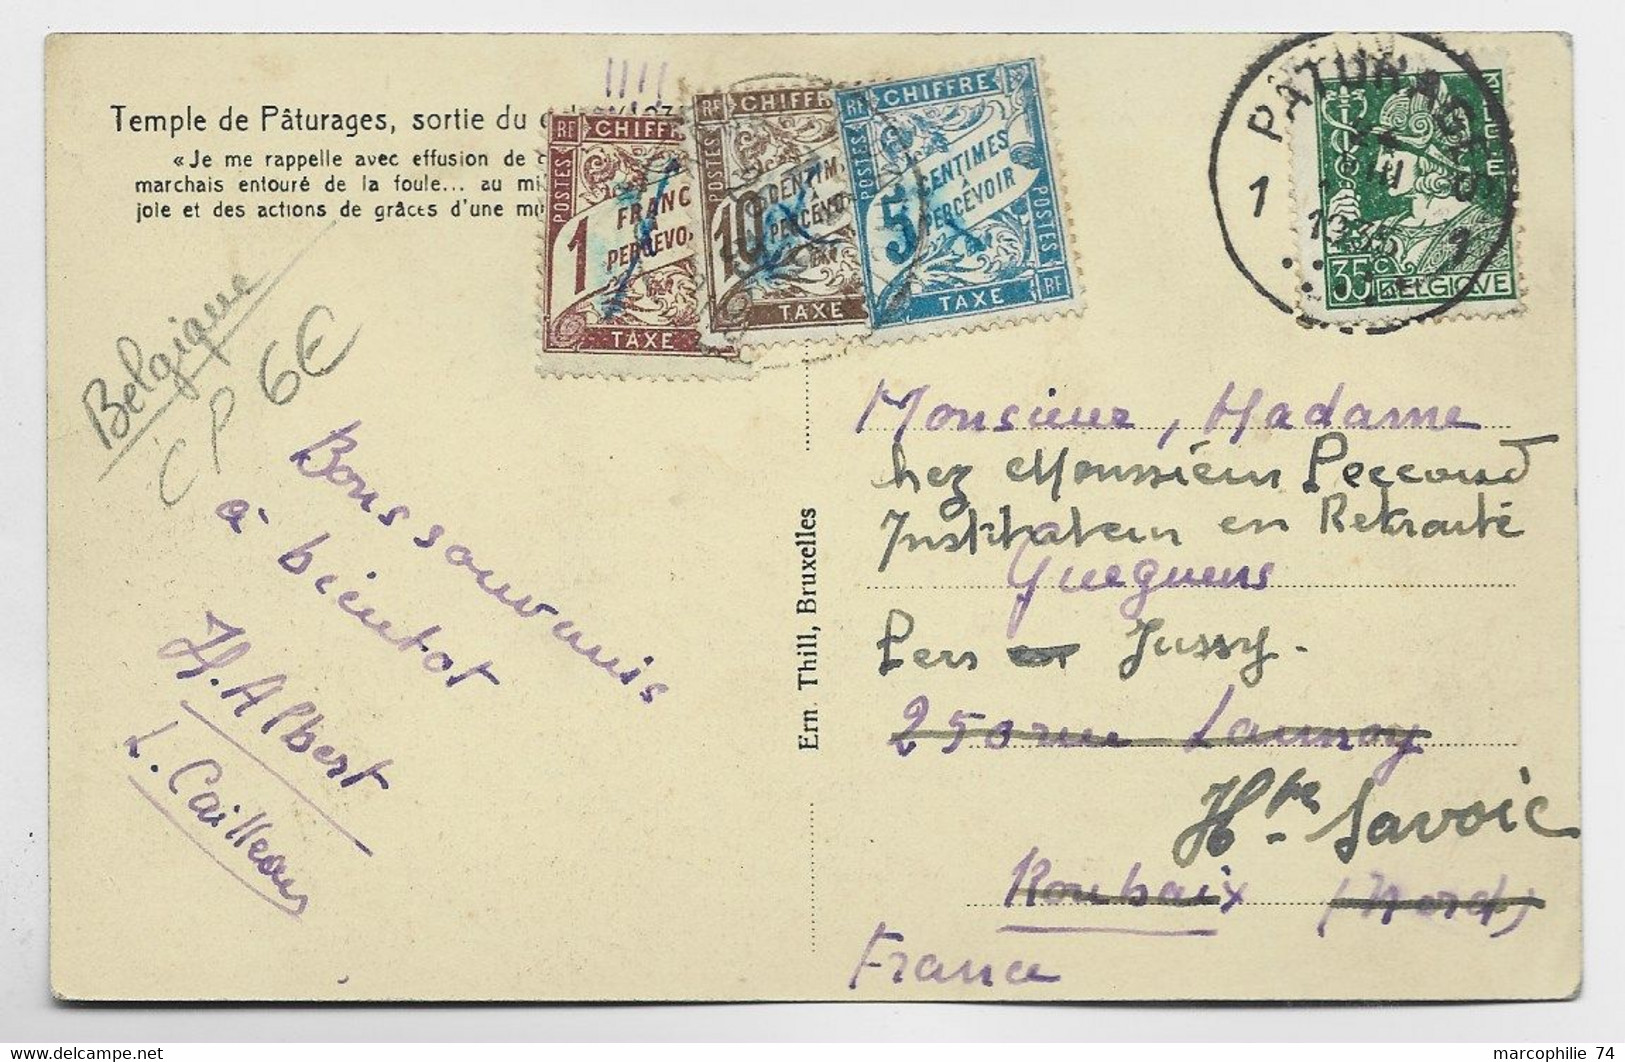 Temple de Pâturages, sortie du
« Je me rappelle avec effusion de
marchais entouré de la foule... au mi
joie et des actions de grâces d'une mu
RF CHIFFRE
POSTES
1 FRANC
À
PERCEVO
TAXE
RF CHIFFR
POSTES
10 CENTIM
PERCEVO
TAXE
RF CHIFFRE
POSTES
5 CENTIMES
À
PERCEVOIR
POSTES
TAXE RF
PATURAGES
1 1
1935
35c BELGIQUE
Belgique
CP 6€
Bons souvenirs
à bientot
H. Albert
L. Cailleau
Ern. Thill, Bruxelles
Monsieur, Madame
chez Monsieur Peccoud
Instituteur en Retraite
Gueguens
Pers Jussy.
250 rue Lannoy
Hte Savoie
Roubaix (Nord)
France
marcophilie 74